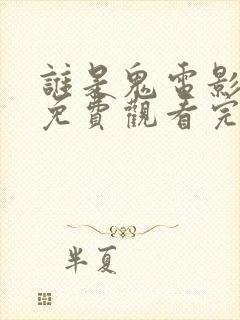 誰是鬼電影
免費觀看完
半夏